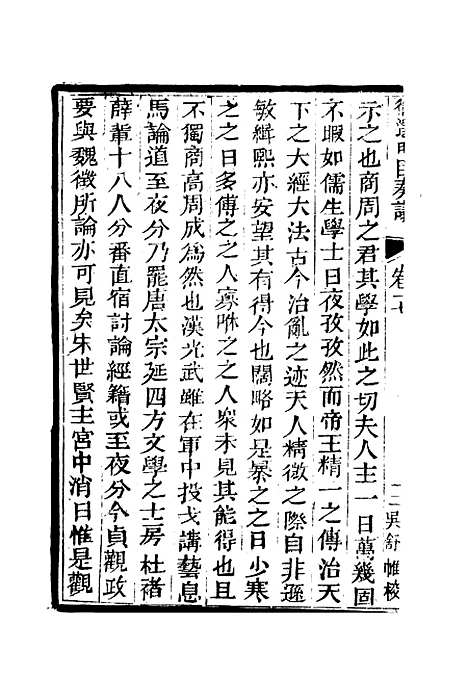 卷十七
二
吳舒帷校
示之也商周之君其學如此之切夫人主一日萬幾固
不暇如儒生學士日夜孜孜然而帝王精一之傳治天
下之大經大法古今治亂之迹天人精徵之際自非遜
敏緝熙亦安望其有得今也闊略如是暴之之日少寒
之之日多傅之之人寡咻之之人衆未見其能得也且
不獨商高周成爲然也漢光武雖在軍中投戈講藝息
馬論道至夜分乃罷唐太宗延四方文學之士房杜褚
薛輩十八人分番直宿討論經籍或至夜分今貞觀政
要與魏徵所論亦可見矣朱世賢主宮中消日惟是觀